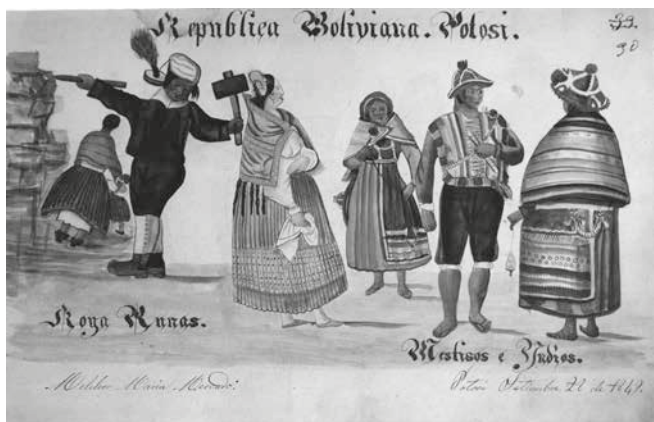 Republica Boliviana. Potosi.
Koya Runas.
Mestisos e Yndios.
Melchor María Mercado.
Potosí Setiembre 22 de 1849.